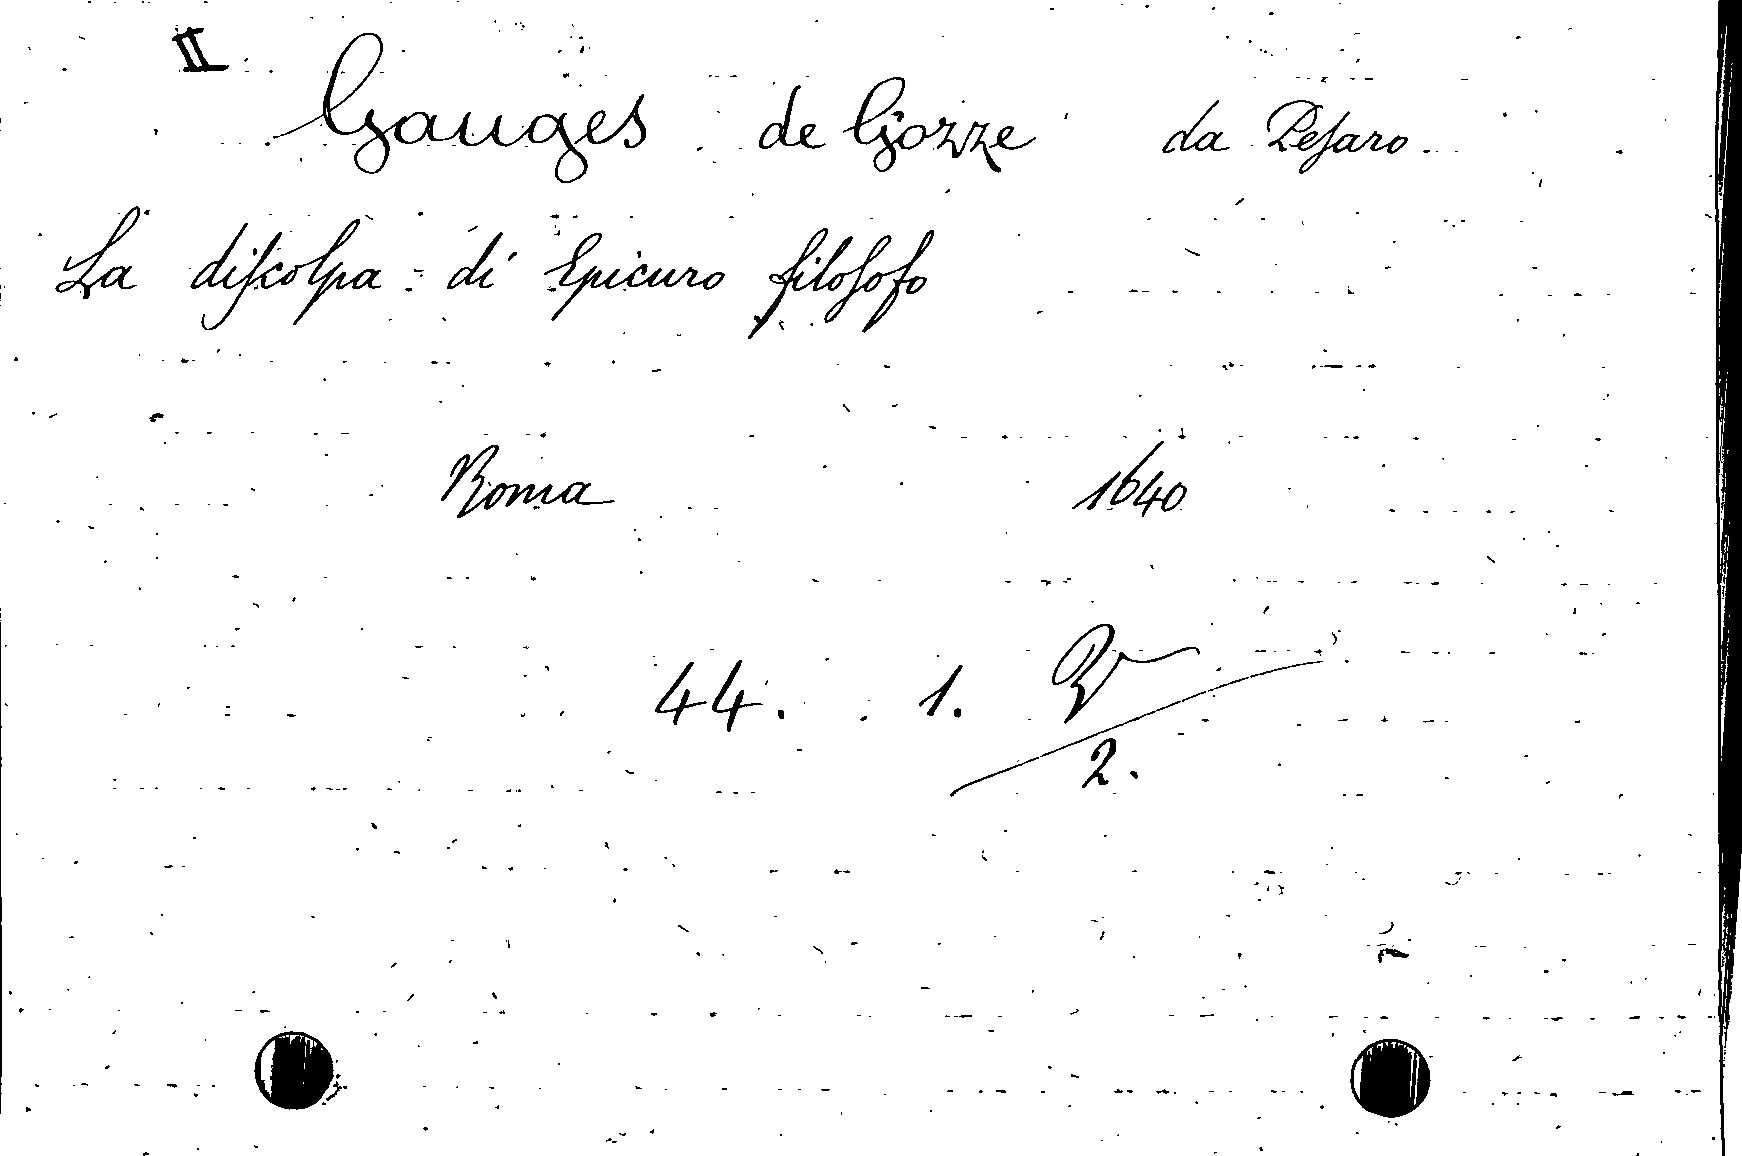 II
Gauges de Gozze da Pesaro.
La discolpa di Epicuro filosofo
Roma 1640
44. 1.
2.